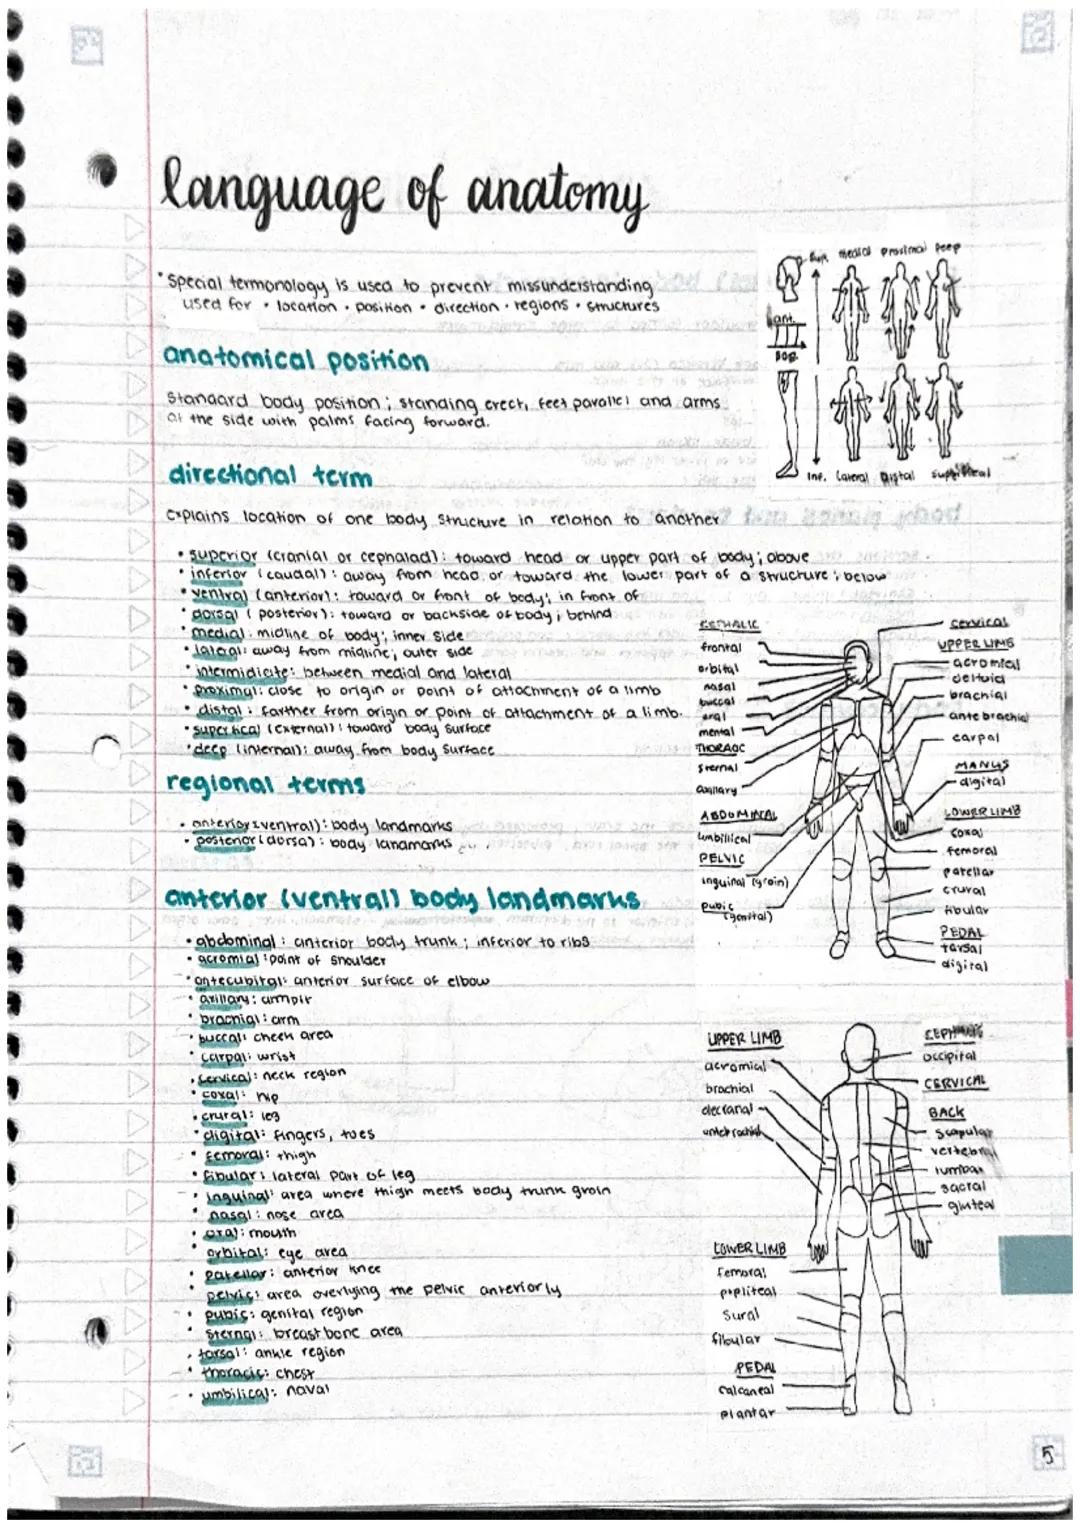 language of anatomy
Special termonology is used to prevent missunderstanding
used for • location • position • direction • regions • structures
anatomical position
Standard body position; standing erect, feet parallel and arms
at the side with palms facing forward.
directional term
explains location of one body structure in relation to another
• superior (cranial or cephalad): toward head or upper part of body; above
• inferior (caudal): away from head or toward the lower part of a structure; below
• ventral (anterior): toward or front of body; in front of
• dorsal (posterior): toward or backside of body; behind
• medial: midline of body; inner side
• lateral: away from midline; outer side
• intermidicite: between medial and lateral
• proximal: close to origin or point of attachment of a limb
• distal: farther from origin or point of attachment of a limb.
• superficial (external): toward body surface
• deep (internal): away from body surface
regional terms
• anterior (ventral): body landmarks
• posterior (dorsal): body landmarks
anterior (ventral) body landmarks
• abdominal: anterior body trunk; inferior to ribs
• acromial: point of shoulder
• antecubital: anterior surface of elbow
• axillary: armpit
• brachial: arm
• buccal: cheek area
• carpal: wrist
• cervical: neck region
• coxal: hip
• crural: leg
• digital: fingers, toes
• femoral: thigh
• fibular: lateral part of leg
• inguinal: area where thigh meets body trunk groin
• nasal: nose area
• oral: mouth
orbital: eye area
• patellar: anterior knee
• pelvic: area overlying the pelvic anteriorly
• pubic: genital region
• sternal: breastbone area
• tarsal: ankle region
• thoracic: chest
• umbilical: naval
Sup. medial Proximal Deep
ant.
pos.
Inf. Lateral Distal Superficial
CEPHALIC
frontal
orbital
nasal
buccal
oral
mental
THORACIC
sternal
axillary
ABDOMINAL
umbillical
PELVIC
inguinal (groin)
pubic
(genital)
cervical
UPPER LIMB
acromial
deltoid
brachial
antebrachial
carpal
MANUS
digital
LOWER LIMB
coxal
femoral
patellar
crural
fibular
PEDAL
tarsal
digital
UPPER LIMB
acromial
brachial
olecranal
antebrachial
LOWER LIMB
femoral
popliteal
sural
fibular
PEDAL
calcaneal
plantar
CEPHALIC
occipital
CERVICAL
BACK
scapular
vertebral
lumbar
sacral
gluteal
5